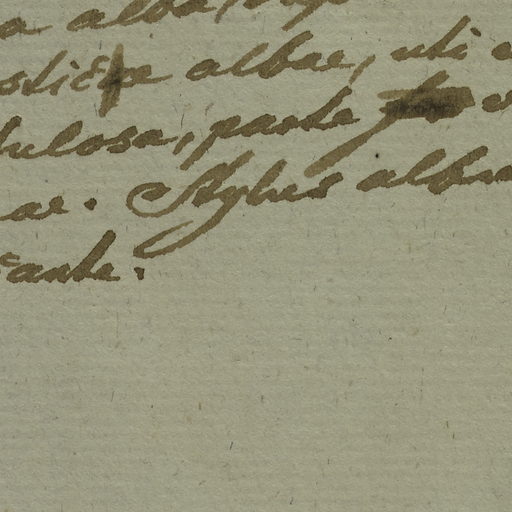 a alba,
albae, uti
dulosa, parte
ae. Stylus albus
ante.